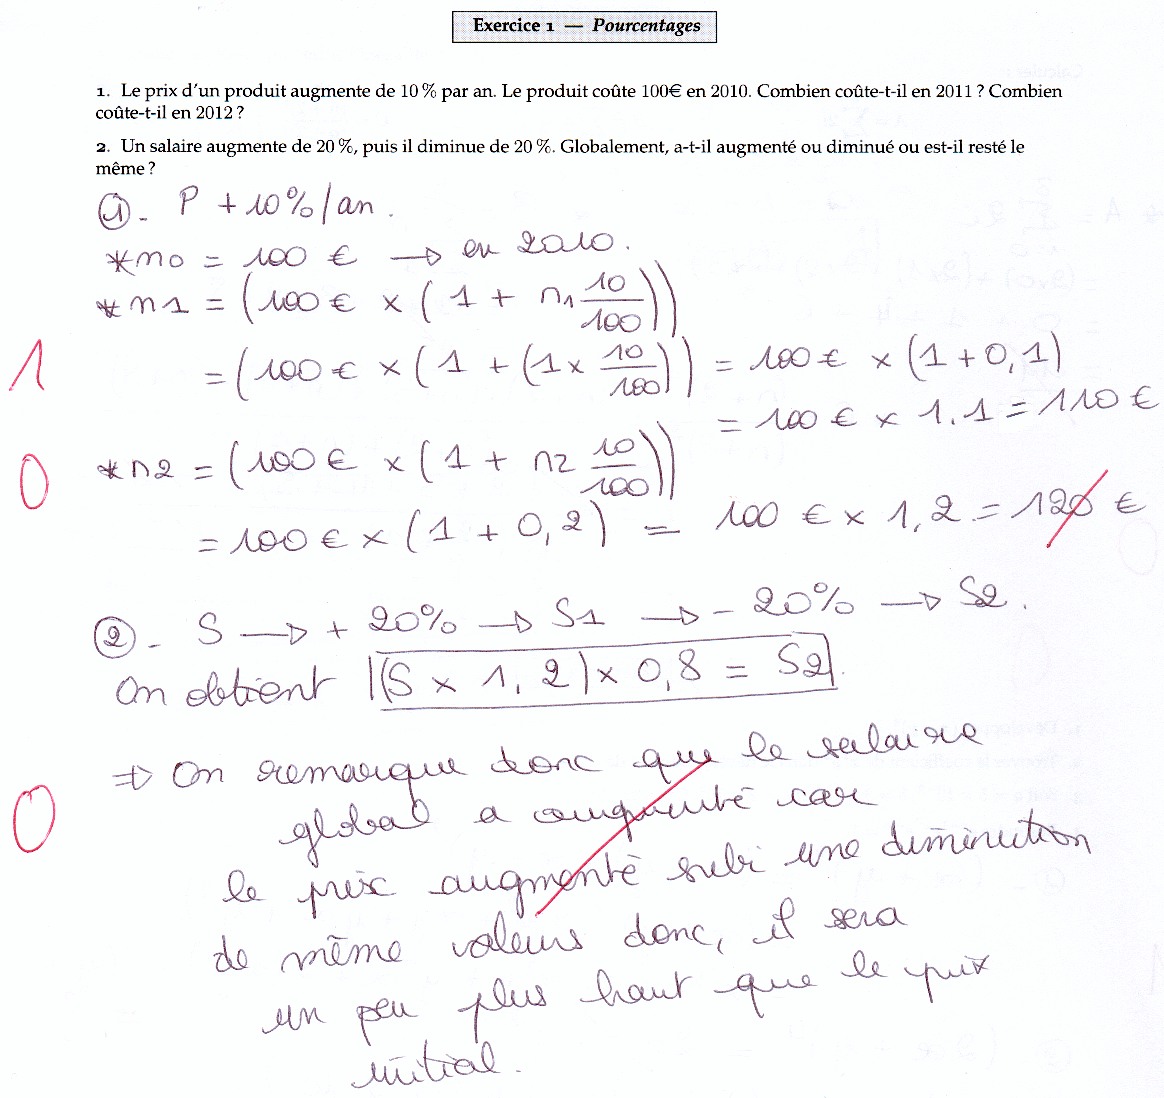 Exercice 1 — Pourcentages
1. Le prix d'un produit augmente de 10 % par an. Le produit coûte 100€ en 2010. Combien coûte-t-il en 2011 ? Combien
coûte-t-il en 2012 ?
2. Un salaire augmente de 20 %, puis il diminue de 20 %. Globalement, a-t-il augmenté ou diminué ou est-il resté le
même ?
1 - P + 10%/an.
* n0 = 100 € → en 2010.
* n1 = (100 € × (1 + n1 10/100))
1
= (100 € × (1 + (1 × 10/100)) = 100 € × (1 + 0,1)
= 100 € × 1.1 = 110 €
0
* n2 = (100 € × (1 + n2 10/100))
= 100 € × (1 + 0,2) = 100 € × 1,2 = 120 €
2 - S → + 20% → S1 → - 20% → S2.
On obtient (S × 1,2) × 0,8 = S2.
⇒ On remarque donc que le salaire
0
global a augmenté car
le prix augmenté subi une diminution
de même valeurs donc, il sera
un peu plus haut que le prix
initial.